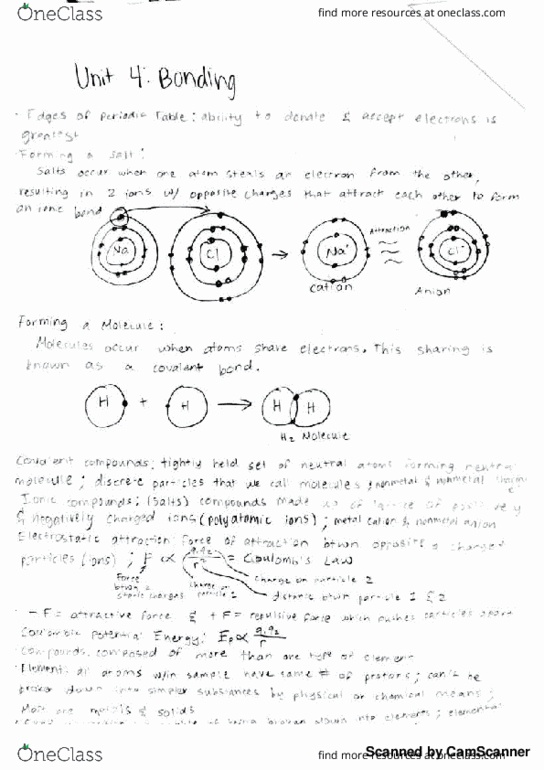 OneClass
find more resources at oneclass.com
Unit 4: Bonding
· Edges of Periodic Table: ability to donate & accept electrons is
greatest
· Forming a salt:
Salts occur when one atom steals an electron from the other,
resulting in 2 ions w/ opposite charges that attract each other to form
an ionic bond
Na
Cl
Na+
Attraction
Cl-
Cation
Anion
Forming a Molecule:
Molecules occur when atoms share electrons. This sharing is
known as a covalent bond.
H + H
H H
H2 Molecule
Covalent compounds: tightly held set of neutral atoms forming neutral
molecule; discrete particles that we call molecules; nonmetal & nonmetal
Ionic compounds: (salts) compounds made up of lattice of positively
& negatively charged ions (polyatomic ions); metal cation & nonmetal anion
Electrostatic attraction: force of attraction btwn oppositely charged
particles (ions); F ∝ q1q2/r² = Coulomb's Law
Force
btwn 2
charges
charge on
particle 1
charge on particle 2
distance btwn particle 1 & 2
· -F = attractive force & +F = repulsive force which pushes particles apart
Coulombic Potential Energy: Ep ∝ q1q2/r
Compounds: composed of more than one type of element
· Element: all atoms w/in sample have same # of protons; can't be
broken down into simpler substances by physical or chemical means;
Most are metals & solids
being broken down into elements;
OneClass
find more resources at oneclass.com
Scanned by CamScanner